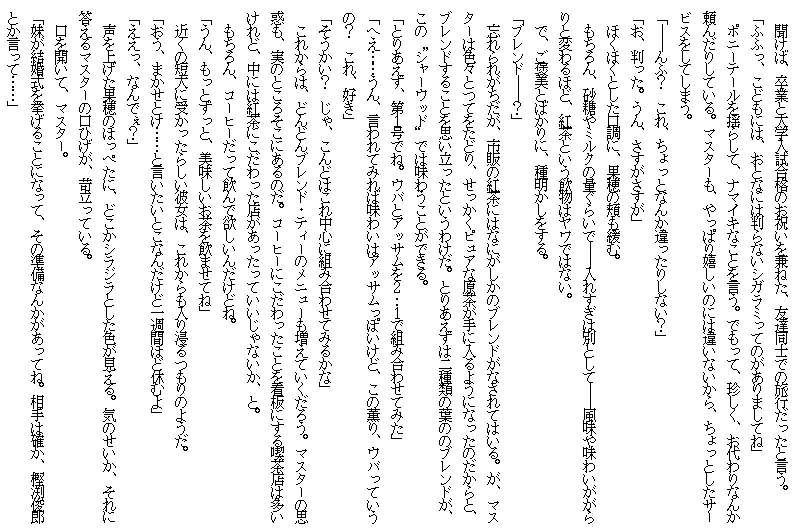 聞けば、卒業と大学入試合格のお祝いを兼ねた、友達同士での旅行だったと言う。
「ふふっ、こどもには、おとなには判らないシガラミってのがありましてね」
ポニーテールを揺らして、ナマイキなことを言う。でもって、珍しく、お代わりなんか
頼んだりしている。マスターも、やっぱり嬉しいのには違いないから、ちょっとしたサー
ビスをしてしまう。
「――んぷ？　これ、ちょっとなんか違ったりしない？」
「お、判った。うん、さすがさすが」
ほくほくとした口調に、果穂の頬も緩む。
もちろん、砂糖やミルクの量ぐらいで――入れすぎは別として――風味や味わいががら
りと変わるほど、紅茶という飲物はヤワではない。
で、ご褒美とばかりに、種明かしをする。
「ブレンド――？」
忘れられがちだが、市販の紅茶にはなにかしかのブレンドがなされてはいる。が、マス
ターは色々とつてをたどり、せっかくピュアな原茶が手に入るようになったのだからと、
ブレンドすることを思い立ったというわけだ。とりあえずは二種類の葉ののブレンドが、
この“シャーウッド”では味わうことができる。
「とりあえず、第１号でね。ウバとアッサムを２：１で組み合わせてみた」
「へえ……うん、言われてみれば味わいはアッサムっぽいけど、この薫り、ウバっていう
の？　これ、好き」
「そうかい？　じゃ、こんどはこれ中心に組み合わせてみるかな」
これからは、どんどんブレンド・ティーのメニューも増えていくだろう。マスターの思
惑も、実のところそこにあるのだ。コーヒーにこだわったことを看板にする喫茶店は多い
けれど、中には紅茶にこだわった店があったっていいじゃないか、と。
もちろん、コーヒーだって飲んで欲しいんだけどね。
「うん、もっとずっと、美味しいお茶を飲ませてね」
近くの短大に受かったらしい彼女は、これからも入り浸るつもりのようだ。
「おう、まかせとけ……と言いたいとこなんだけど一週間ほど休むよ」
「ええっ、なんでぇ？」
声を上げた果穂のほっぺたに、どこかシラジラとした色が見える。気のせいか、それに
答えるマスターの口ひげが、苛立っている。
口を開いて、マスター。
「妹が結婚式を挙げることになって、その準備なんかがあってね。相手は確か、樫渕俊郎
とか言って……」